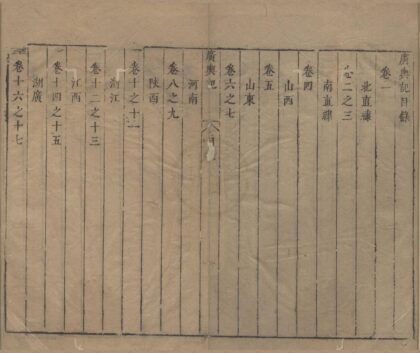 廣輿記目錄
卷一
北直隸
卷二之三
南直隸
卷四
山西
卷五
山東
卷六之七
河南
卷八之九
陝西
卷十之十一
浙江
卷十二之十三
江西
卷十四之十五
湖廣
卷十六之十七
廣輿記
目